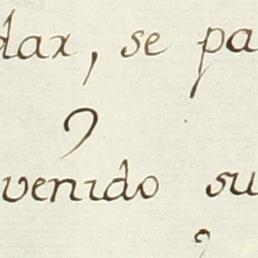 dax, se pa
venido su